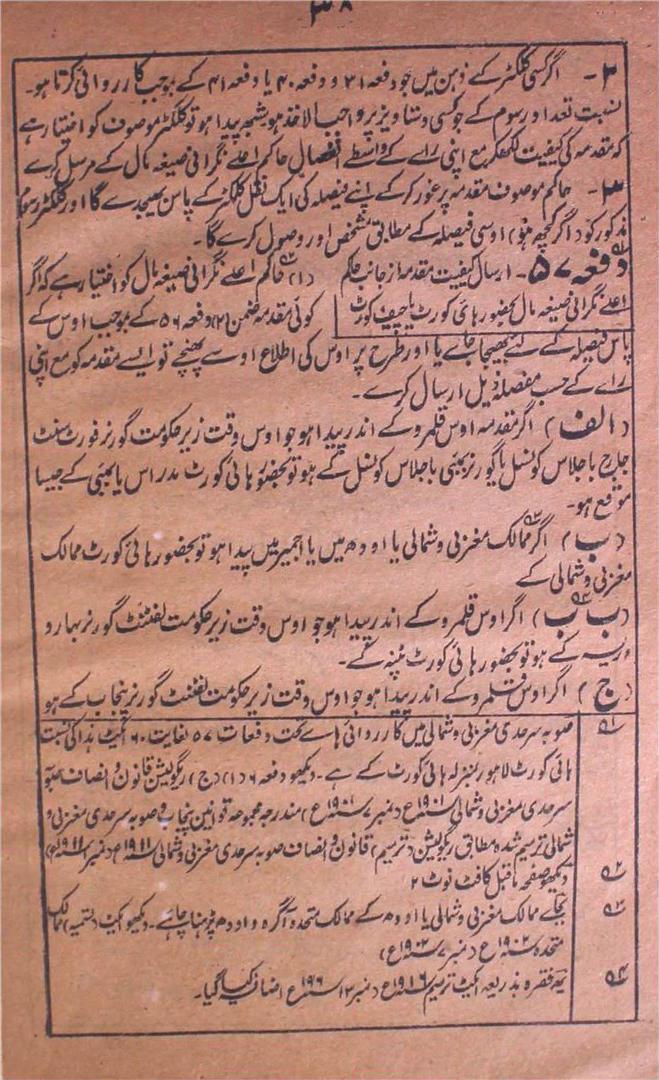 ۳۸
۲- اگر کسی کلکٹر کے ذہن میں جو دفعہ ۳۱ و دفعہ ۴۰ یا دفعہ ۴۱ کے بموجب کارروائی کرتا ہو۔
نسبت تعداد رسوم کے جو کسی دستاویز پر واجب الاخذ ہو شبہ پیدا ہو تو کلکٹر موصوف کو اختیار ہے
کہ مقدمہ کی کیفیت لکھکر مع اپنی رائے کے واسطے انفصال حاکم اعلےٰ نگرانی صیغہ مال کے مرسل کرے
۳- حاکم موصوف مقدمہ پر غور کر کے اپنے فیصلہ کی ایک نقل کلکٹر کے پاس بھیجدے گا اور کلکٹر موصوف
مذکور کو (اگر کچھ ہو) اوسی فیصلہ کے مطابق مشخص اور وصول کرے گا۔
دفعہ ۵۷- ارسال کیفیت مقدمہ از جانب حاکم
اعلےٰ نگرانی صیغہ مال بحضور ہائی کورٹ یا چیف کورٹ
(۱) حاکم اعلےٰ نگرانی صیغہ مال کو اختیار ہے کہ اگر
کوئی مقدمہ ضمن (۲) دفعہ ۵۶ کے بموجب اوس کے
پاس فیصلہ کے لئے بھیجا جائے یا اور طرح پر اوس کی اطلاع اوسے پہنچے تو ایسے مقدمہ کو مع اپنی
رائے کے حسب مفصلہ ذیل ارسال کرے۔
(الف) اگر مقدمہ اوس قلمرو کے اندر پیدا ہو جو اوس وقت زیر حکومت گورنر فورٹ سنٹ
جارج باجلاس کونسل یا گورنر بمبئی باجلاس کونسل کے ہو تو بحضور ہائی کورٹ مدراس یا بمبئی کے جیسا
موقع ہو۔
(ب) اگر ممالک مغربی و شمالی یا اودھ میں یا اجمیر میں پیدا ہو تو بحضور ہائی کورٹ ممالک
مغربی و شمالی کے
(ب ب) اگر اوس قلمرو کے اندر پیدا ہو جو اوس وقت زیر حکومت لفٹنٹ گورنر بہار و
اوریسہ کے ہو تو بحضور ہائی کورٹ پٹنہ کے۔
(ج) اگر اوس قلمرو کے اندر پیدا ہو جو اوس وقت زیر حکومت لفٹنٹ گورنر پنجاب کے ہو
۱ صوبہ سرحدی مغربی و شمالی میں کارروائی ہائے تحت دفعات ۵۷ لغایت ۶۰ ایکٹ ہذا کی نسبت
ہائی کورٹ لاہور بمنزلہ ہائی کورٹ کے ہے۔ دیکھو دفعہ ۶ (۱) (ج) ریگولیشن قانون و انصاف صوبہ
سرحدی مغربی و شمالی ۱۹۰۱ع (نمبر ۷ ۱۹۰۱ع) مندرجہ مجموعہ قوانین پنجاب و صوبہ سرحدی مغربی و
شمالی ترمیم شدہ مطابق ریگولیشن (ترمیم) قانون و انصاف صوبہ سرحدی مغربی و شمالی ۱۹۱۱ع (نمبر ۱۹۱۱ع)
۲ دیکھو صفحہ ماقبل کا فٹ نوٹ ۲
۳ بجائے ممالک مغربی و شمالی یا اودھ کے ممالک متحدہ آگرہ و اودھ پڑہنا چاہئے۔ دیکھو ایکٹ (تسمیہ) ممالک
متحدہ ۱۹۰۲ع (نمبر ۷ ۱۹۰۲ع)
۴ یہ فقرہ بذریعہ ایکٹ ترمیم ۱۹۱۶ع (نمبر ۱۳ ۱۹۱۶ع اضافہ کیا گیا۔